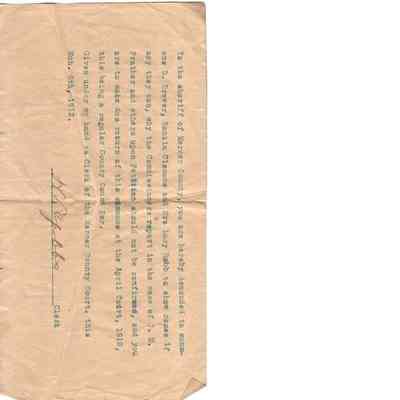 To the sheriff of Mercer County, you are hereby demanded to summ-
ons D. Brewer, Benila Clemons and Mrs Lucy Robb to show cause if
any they can, why the Commissioners report in the case of J. H.
Prather and others upon Petition should not be confirmed, and you
are to make due return of this summons at the April Court, 1912,
this being a regular County Court day.
Given under my hand as Clerk of the Mercer County Court, this
Mch. 8th, 1912.
Clerk